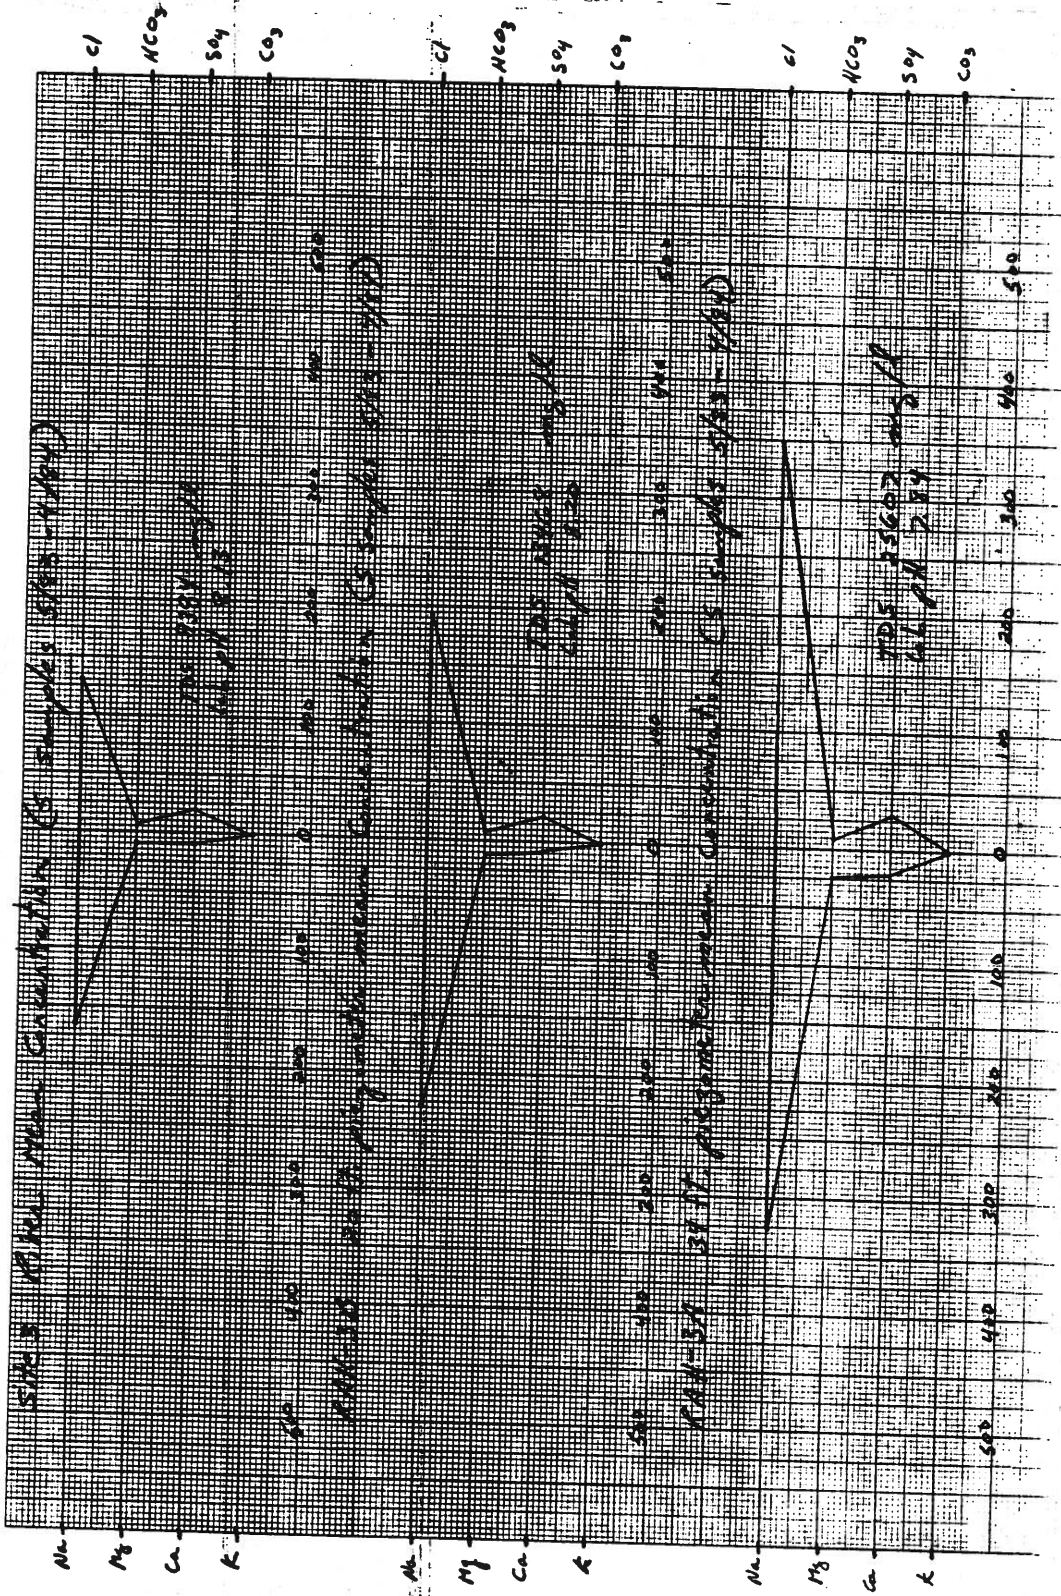 Site 3 River Mean Concentration (5 samples 5/83-4/84)
Na Cl
Mg HCO3
Ca SO4
K CO3
TDS 9384 mg/l
Lab pH 8.13
500 400 300 200 100 0 100 200 300 400 500
RAH-3B 20 ft. piezometer mean Concentration (5 samples 5/83-4/84)
Na Cl
Mg HCO3
Ca SO4
K CO3
TDS mg/l
Lab pH 8.20
500 400 200 200 100 0 100 200 300 400 500
RAH-3A 34 ft. piezometer mean Concentration (5 samples 5/83-4/84)
Na Cl
Mg HCO3
Ca SO4
K CO3
TDS 25602 mg/l
Lab pH 7.84
500 400 300 200 100 0 100 200 300 400 500